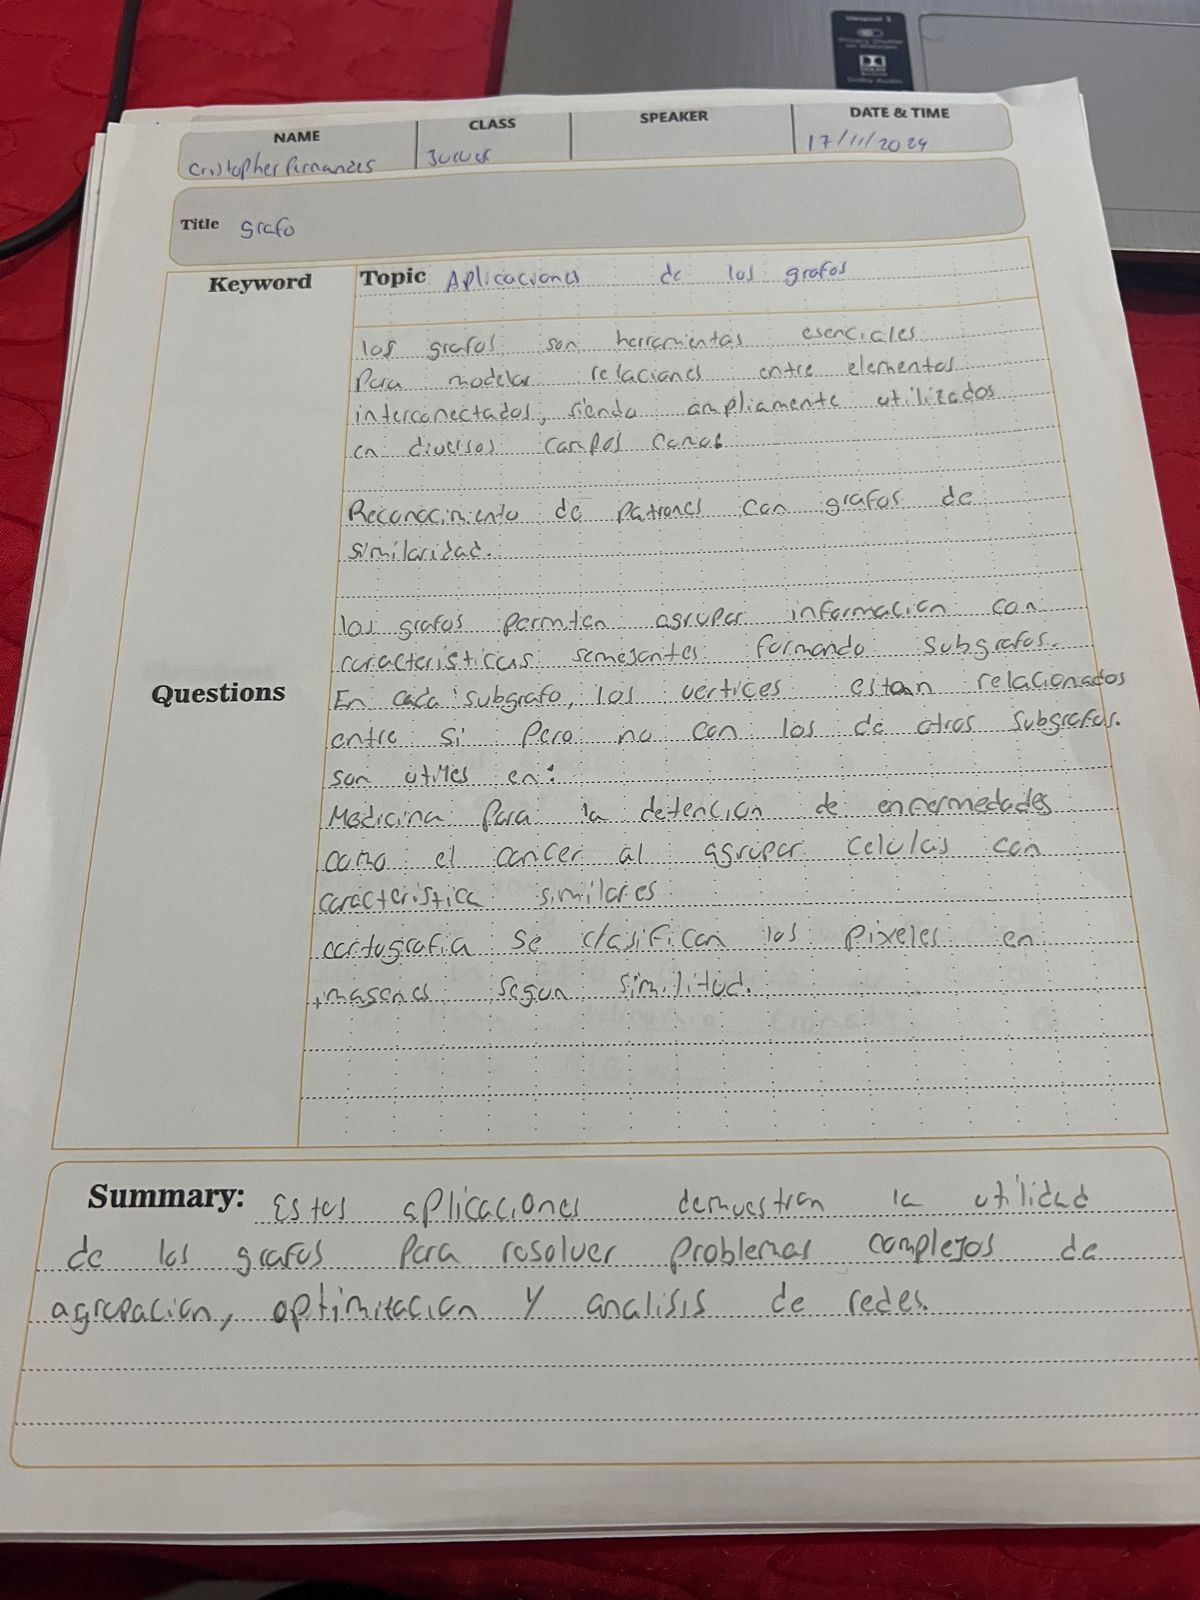 NAME
CLASS
SPEAKER
DATE & TIME
Cristopher Fernandes
Jueves
17/11/2024
Title grafo
Keyword
Topic Aplicaciones de los grafos
los grafos son herramientas esenciales
Para modelar relaciones entre elementos
interconectados, siendo ampliamente utilizados
en diversos campos como
Reconocimiento de patrones con grafos de
similaridad.
los grafos permiten agrupar informacion con
caracteristicas semejantes formando subgrafos.
Questions
En cada subgrafo, los vertices estan relacionados
entre si pero no con los de otros subgrafos.
son utiles en:
Medicina para la detencion de enfermedades
como el cancer al agrupar celulas con
caracteristica similares
cartografia se clasifican los pixeles en
imagenes segun similitud.
Summary: Estas aplicaciones demuestran la utilidad
de los grafos para resolver problemas complejos de
agrupacion, optimitacion y analisis de redes.